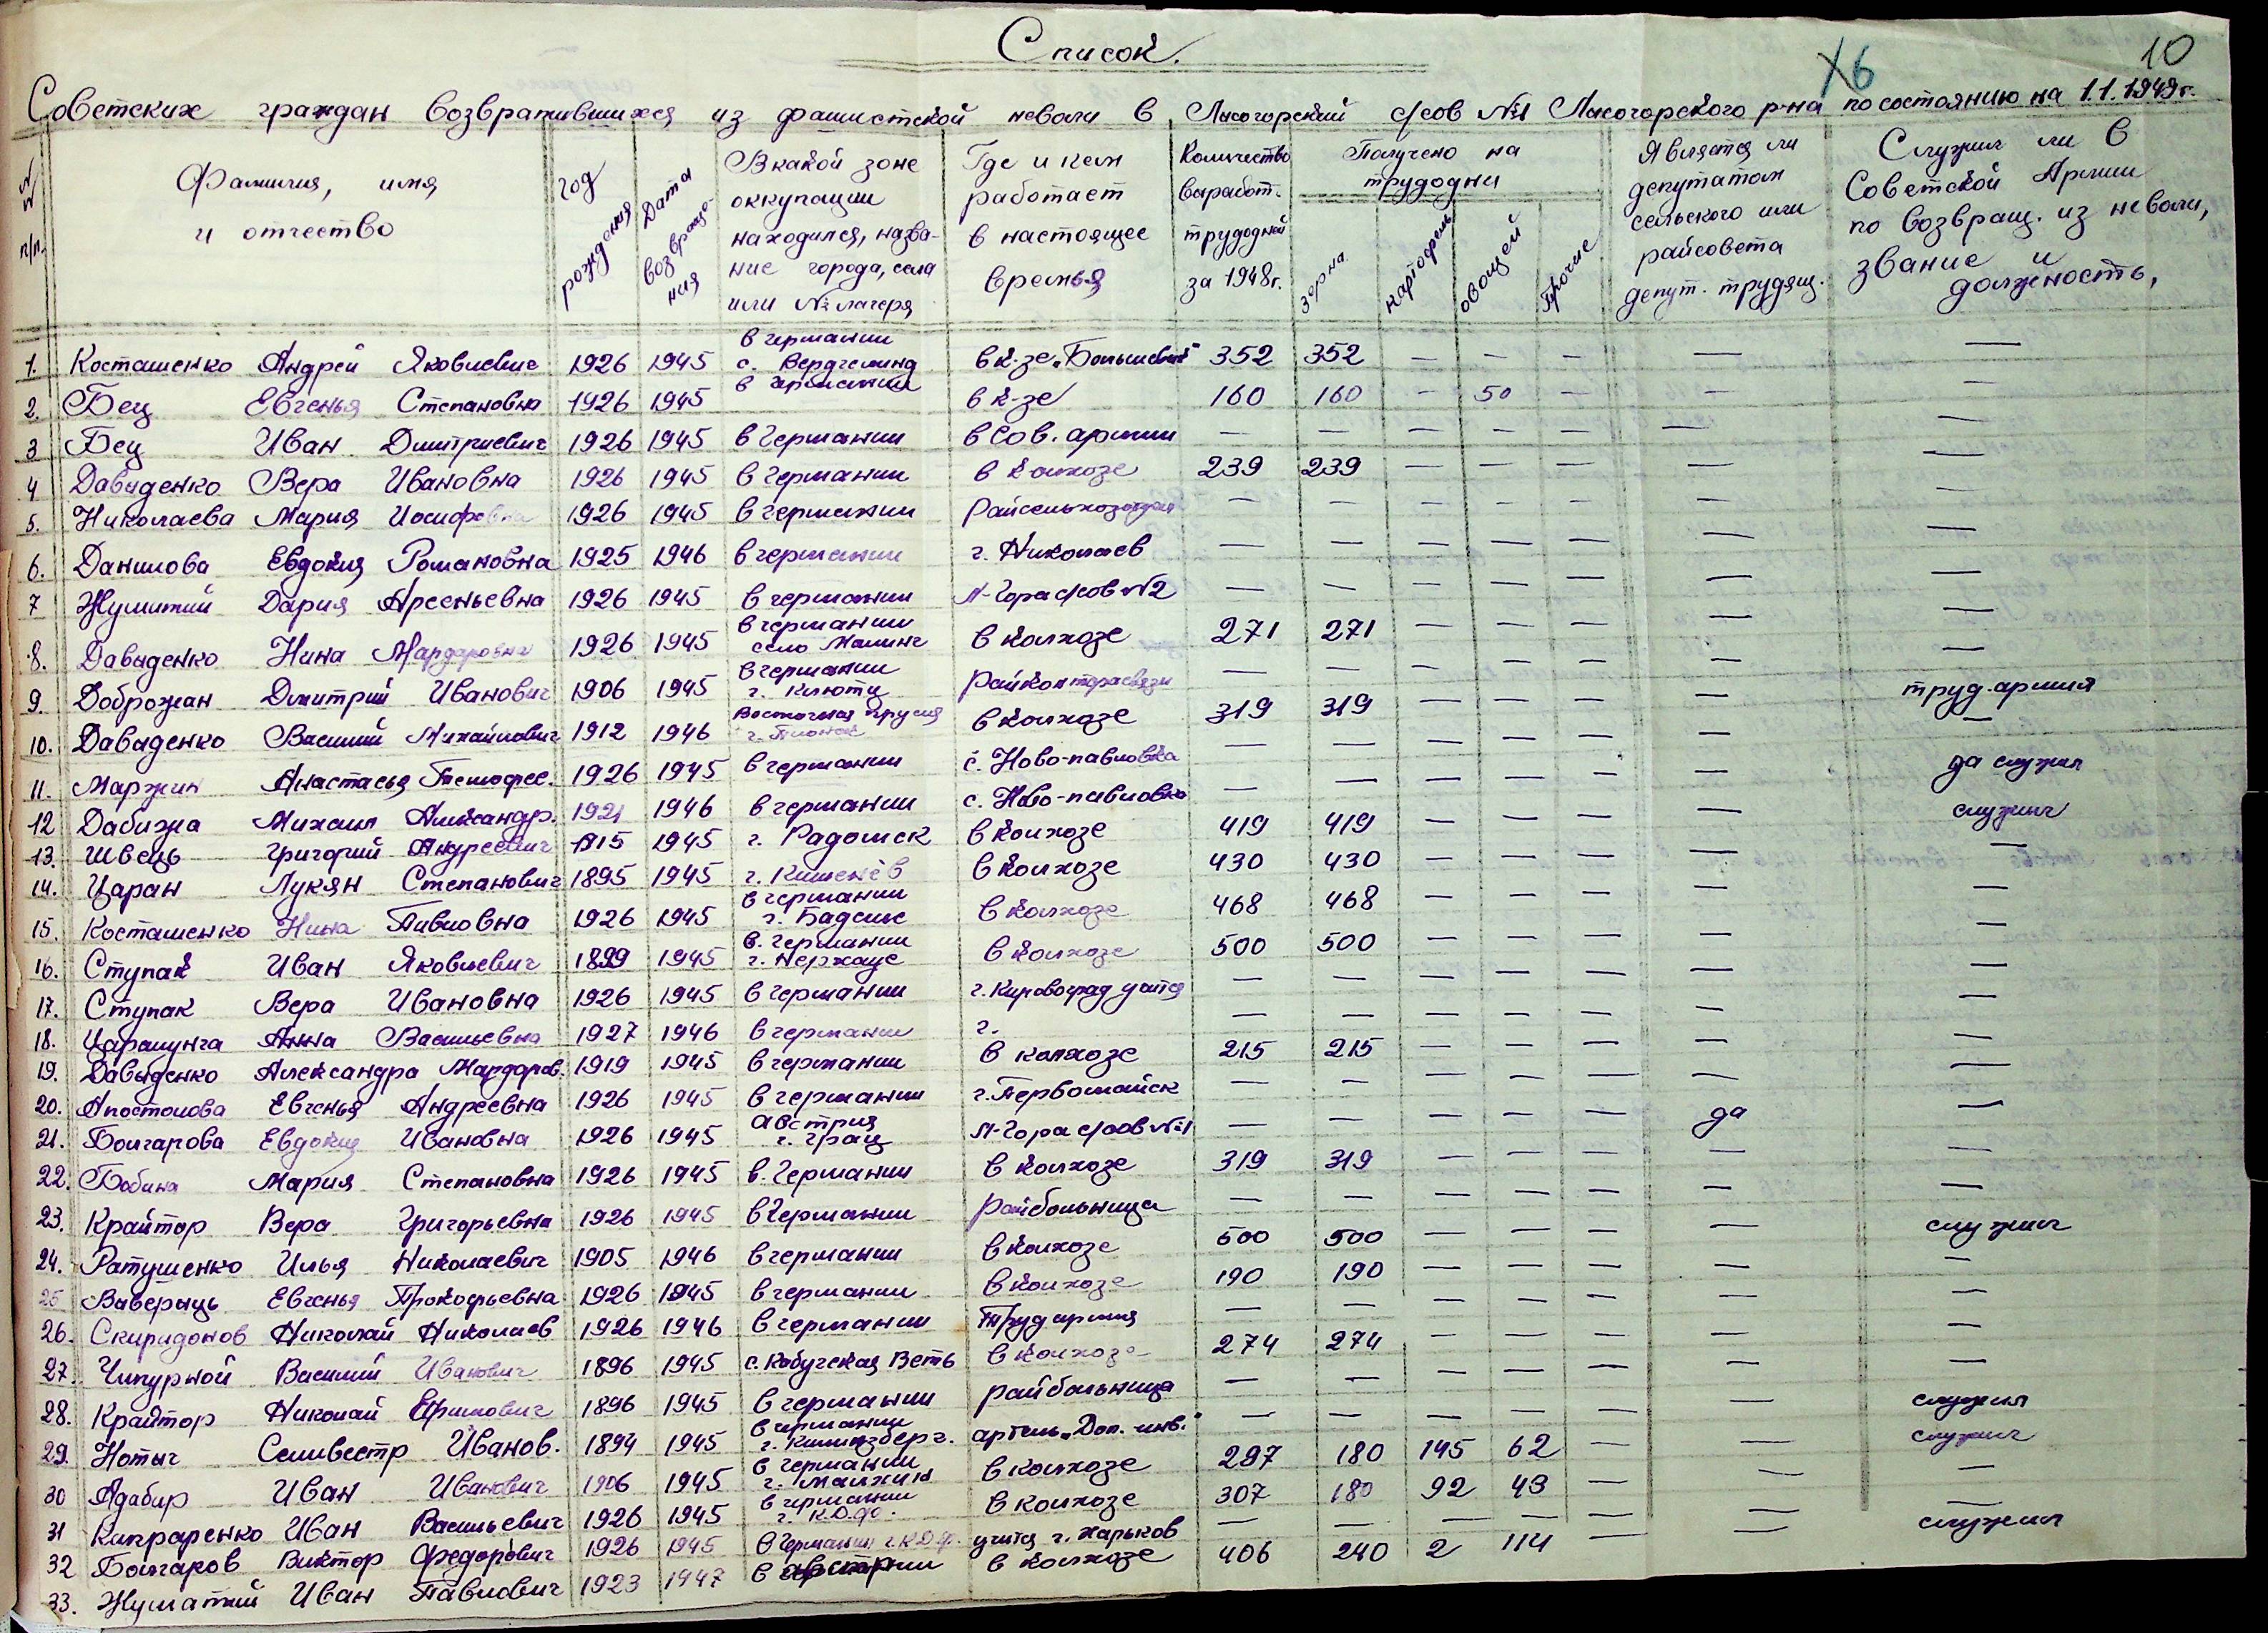 Список.
Х6
10
Советских граждан возвратившихся из фашистской неволи в Лысогорский с/сов №1 Лысогорского р-на по состоянию на 1.1.1949г.
№№ п/п.
Фамилия, имя и отчество
год рождения
Дата возвраще-ния
В какой зоне оккупации находился, назва-ние города, села или № лагеря
Где и кем работает в настоящее время
Количество выработ. трудодней за 1948г.
Получено на трудодни
зерна
картофель
овощей
Прочие
Является ли депутатом сельского или райсовета депут. трудящ.
Служил ли в Советской Армии по возвращ. из неволи, звание и должность,
1. Косташенко Андрей Яковлевич 1926 1945 в германии с. в к-зе „Большевик" 352 352 — — — — —
2. Бец Евгенья Степановна 1926 1945 в германии в к-зе 160 160 — 50 — — —
3 Бец Иван Дмитриевич 1926 1945 в Германии в Сов. армии — — — — — — —
4 Давыденко Вера Ивановна 1926 1945 в Германии в колхозе 239 239 — — — — —
5. Николаева Мария Иосифовна 1926 1945 в германии — — — — — — —
6. Данилова Евдокия Романовна 1925 1946 в германии г. Николаев — — — — — — —
7 Дария Арсеньевна 1926 1945 в германии Л-Гора с/сов №2 — — — — — — —
8. Давыденко Нина 1926 1945 в германии село в колхозе 271 271 — — — — —
9. Доброжан Дмитрий Иванович 1906 1945 в германии г. Райконтора связи — — — — — — труд. армия
10. Давыденко Василий Михайлович 1912 1946 Восточная Прусия г. в колхозе 319 319 — — — — —
11. Маржин Анастасья Темофее. 1926 1945 в германии с. Ново-павловка — — — — — —
12 Дабижа Михаил Александр. 1921 1946 в германии с. Ново-павловка — — — — — — да служил
13. Швець Григорий Андреевич 1915 1945 г. Радомск в колхозе 419 419 — — — — служил
14. Царан Лукян Степанович 1895 1945 г. Кишенёв в колхозе 430 430 — — — — —
15. Косташенко Нина Павловна 1926 1945 в германии г. в колхозе 468 468 — — — — —
16. Ступак Иван Яковлевич 1899 1945 в. германии г. в колхозе 500 500 — — — — —
17. Ступак Вера Ивановна 1926 1945 в германии г. Кировоград учится — — — — — — —
18. Царалунга Анна Васильевна 1927 1946 в германии г. — — — — — — —
19. Давыденко Александра Мардаров. 1919 1945 в германии в колхозе 215 215 — — — — —
20. Апостолова Евгенья Андреевна 1926 1945 в германии г. Первомайск — — — — — — —
21. Болгарова Евдокия Ивановна 1926 1945 австрия г. Грац Л-Гора с/сов №1 — — — — — да —
22. Бабина Мария Степановна 1926 1945 в. Германии в колхозе 319 319 — — — — —
23. Крайтор Вера Григорьевна 1926 1945 в Германии Райбольница — — — — — — —
24. Ратушенко Илья Николаевич 1905 1946 в германии в колхозе 500 500 — — — — служил
25 Ваверыць Евгенья Прокофьевна 1926 1945 в германии в колхозе 190 190 — — — — —
26. Скиридонов Николай Николаев 1926 1946 в германии Труд армия — — — — — — —
27. Чипурной Василий Иванович 1896 1945 с. в колхозе 274 274 — — — — —
28. Крайтор Николай Ефимович 1896 1945 в германии райбольница — — — — — — —
29. Нотыч Селивестр Иванов. 1894 1945 в германии г. артель „Доп. инв." — — — — — — служил
30 Адабир Иван Иванович 1906 1945 в германии г. в колхозе 297 180 145 62 — — служил
31 Иван Васильевич 1926 1945 в германии г. К.Д.ф. в колхозе 307 180 92 43 — — —
32 Болгаров Виктор Федорович 1926 1945 в Германии г. К.Д.ф. учится г. Харьков — — — — — — —
33. Иван Павлович 1923 1947 в австрии в колхозе 406 240 2 114 — — служил